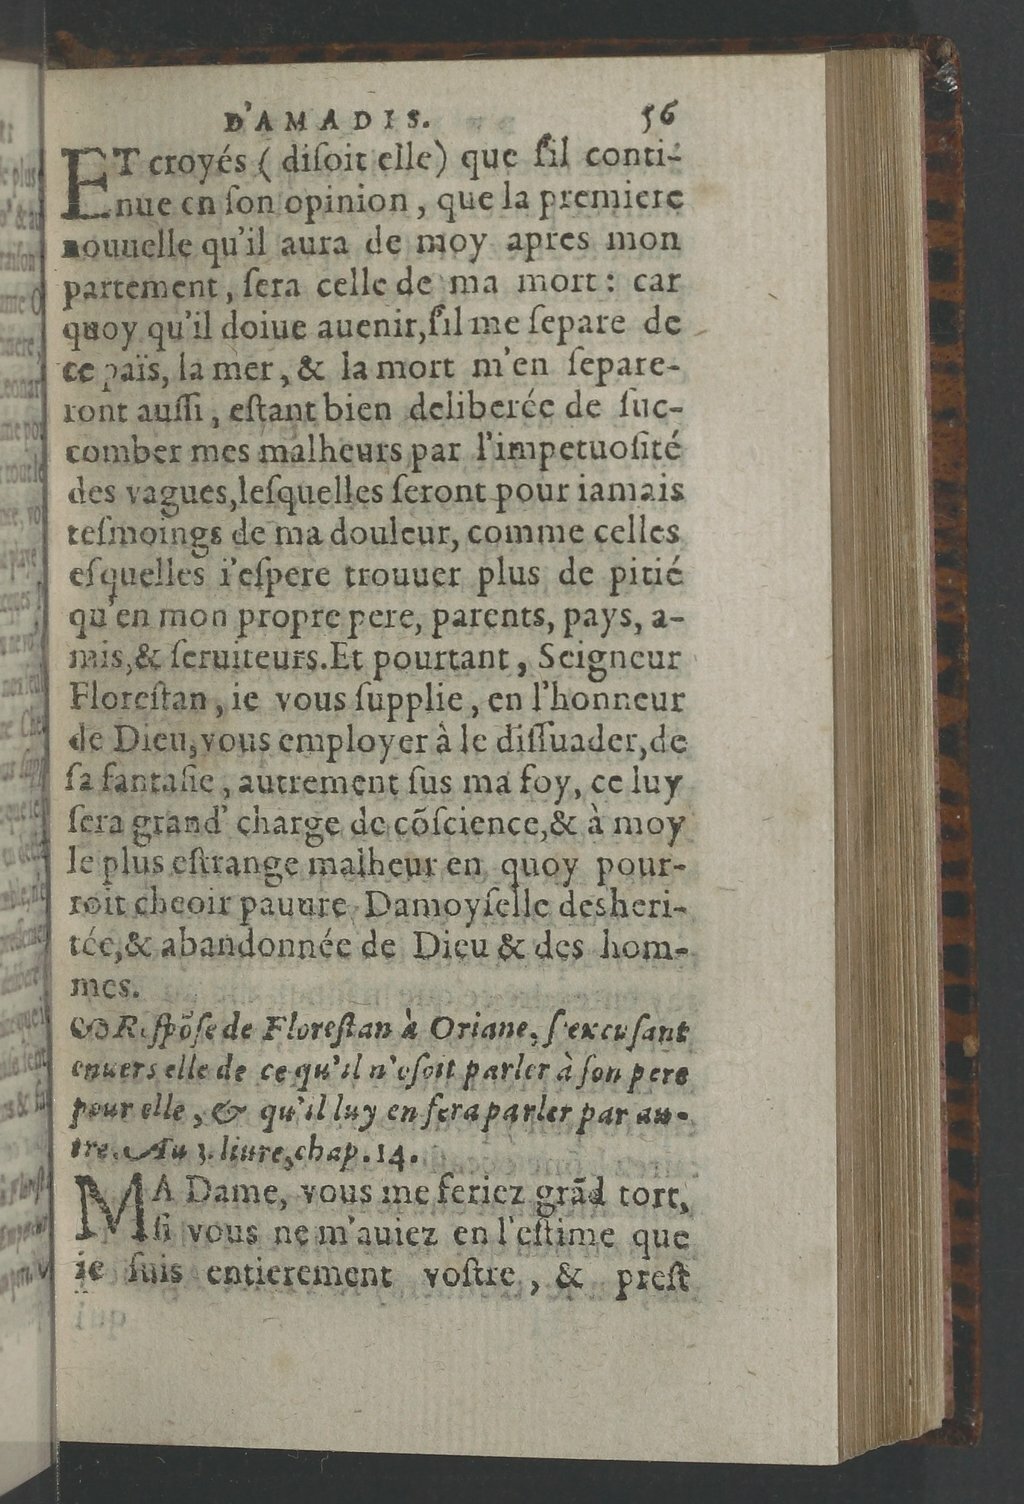 D'AMADIS. 56
ET croyés ( diſoit elle) que ſ'il conti-
nue en ſon opinion, que la premiere
nouuelle qu'il aura de moy apres mon
partement, ſera celle de ma mort: car
quoy qu'il doiue auenir, ſ'il me ſepare de
ce païs, la mer, & la mort m'en ſepare-
ront auſſi, eſtant bien deliberée de ſuc-
comber mes malheurs par l'impetuoſité
des vagues, leſquelles ſeront pour iamais
teſmoings de ma douleur, comme celles
eſquelles i'eſpere trouuer plus de pitié
qu'en mon propre pere, parents, pays, a-
mis, & ſeruiteurs. Et pourtant, Seigneur
Floreſtan, ie vous ſupplie, en l'honneur
de Dieu, vous employer à le diſſuader, de
ſa fantaſie, autrement ſus ma foy, ce luy
ſera grand' charge de cõſcience, & à moy
le plus eſtrange malheur en quoy pour-
roit cheoir pauure Damoyſelle desheri-
tée, & abandonnée de Dieu & des hom-
mes.
Reſpõſe de Floreſtan à Oriane, ſ'excuſant
enuers elle de ce qu'il n'oſoit parler à ſon pere
pour elle, & qu'il luy en fera parler par au-
tre. Au 3. liure, chap. 14.
MA Dame, vous me feriez grãd tort,
ſi vous ne m'auiez en l'eſtime que
ie ſuis entierement voſtre, & preſt